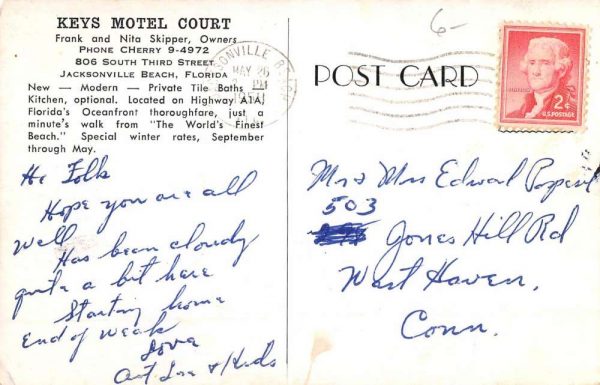 KEYS MOTEL COURT
Frank and Nita Skipper, Owners
PHONE CHERRY 9-4972
806 SOUTH THIRD STREET
JACKSONVILLE BEACH, FLORIDA
New — Modern — Private Tile Baths
Kitchen, optional. Located on Highway A1A,
Florida's Oceanfront thoroughfare, just a
minute's walk from "The World's Finest
Beach." Special winter rates, September
through May.
He Folk
Hope you are all
well
Has been cloudy
quite a bit here
Starting home
end of weak
Love
& Kids
6-
MAY 26
PM
POST CARD
2¢
U.S. POSTAGE
Mr & Mrs Edward
503
Jones Hill Rd
West Haven,
Conn.